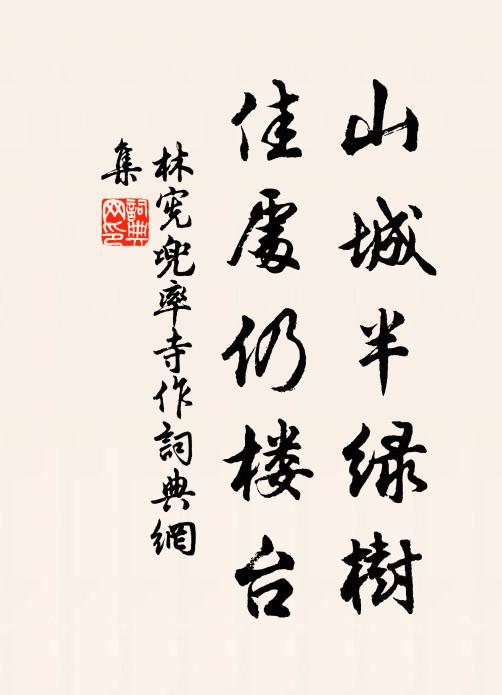 山城半绿樹
佳處仍楼台
林宪兜率寺作詞典網
集
詞典網印